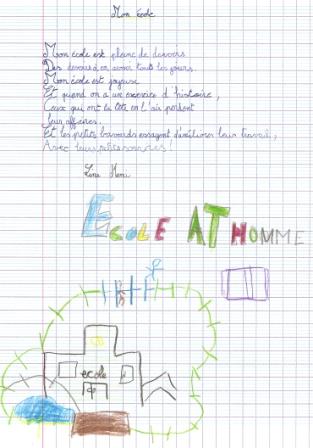 Mon école
Mon école est pleine de devoirs
Des devoirs, en avoir tout les jours.
Mon école est joyeuse
Et quand on a un exercice d'histoire,
Ceux qui ont la tête en l'air perdent
leur affaires.
Et les petits bavards essayent d'améliorer leur travail,
Avec leurs petites
ECOLE AT HOMME
école